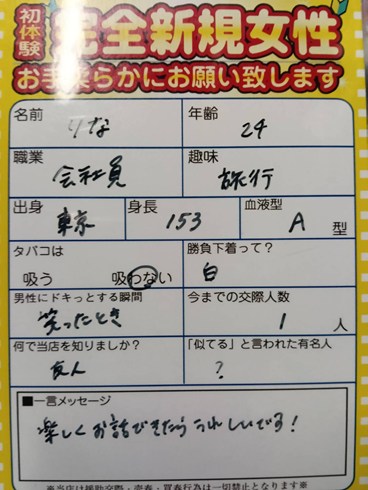 初体験
完全新規女性
お手柔らかにお願い致します
名前 りな 年齢 24
職業 会社員 趣味 旅行
出身 東京 身長 153 血液型 A 型
タバコは 吸う 吸わない
勝負下着って? 白
男性にドキっとする瞬間 笑ったとき
今までの交際人数 1 人
何で当店を知りましたか? 友人
「似てる」と言われた有名人 ?
■一言メッセージ
楽しくお話できたらうれしいです!
※当店は援助交際・売春・買春行為は一切禁止となります※